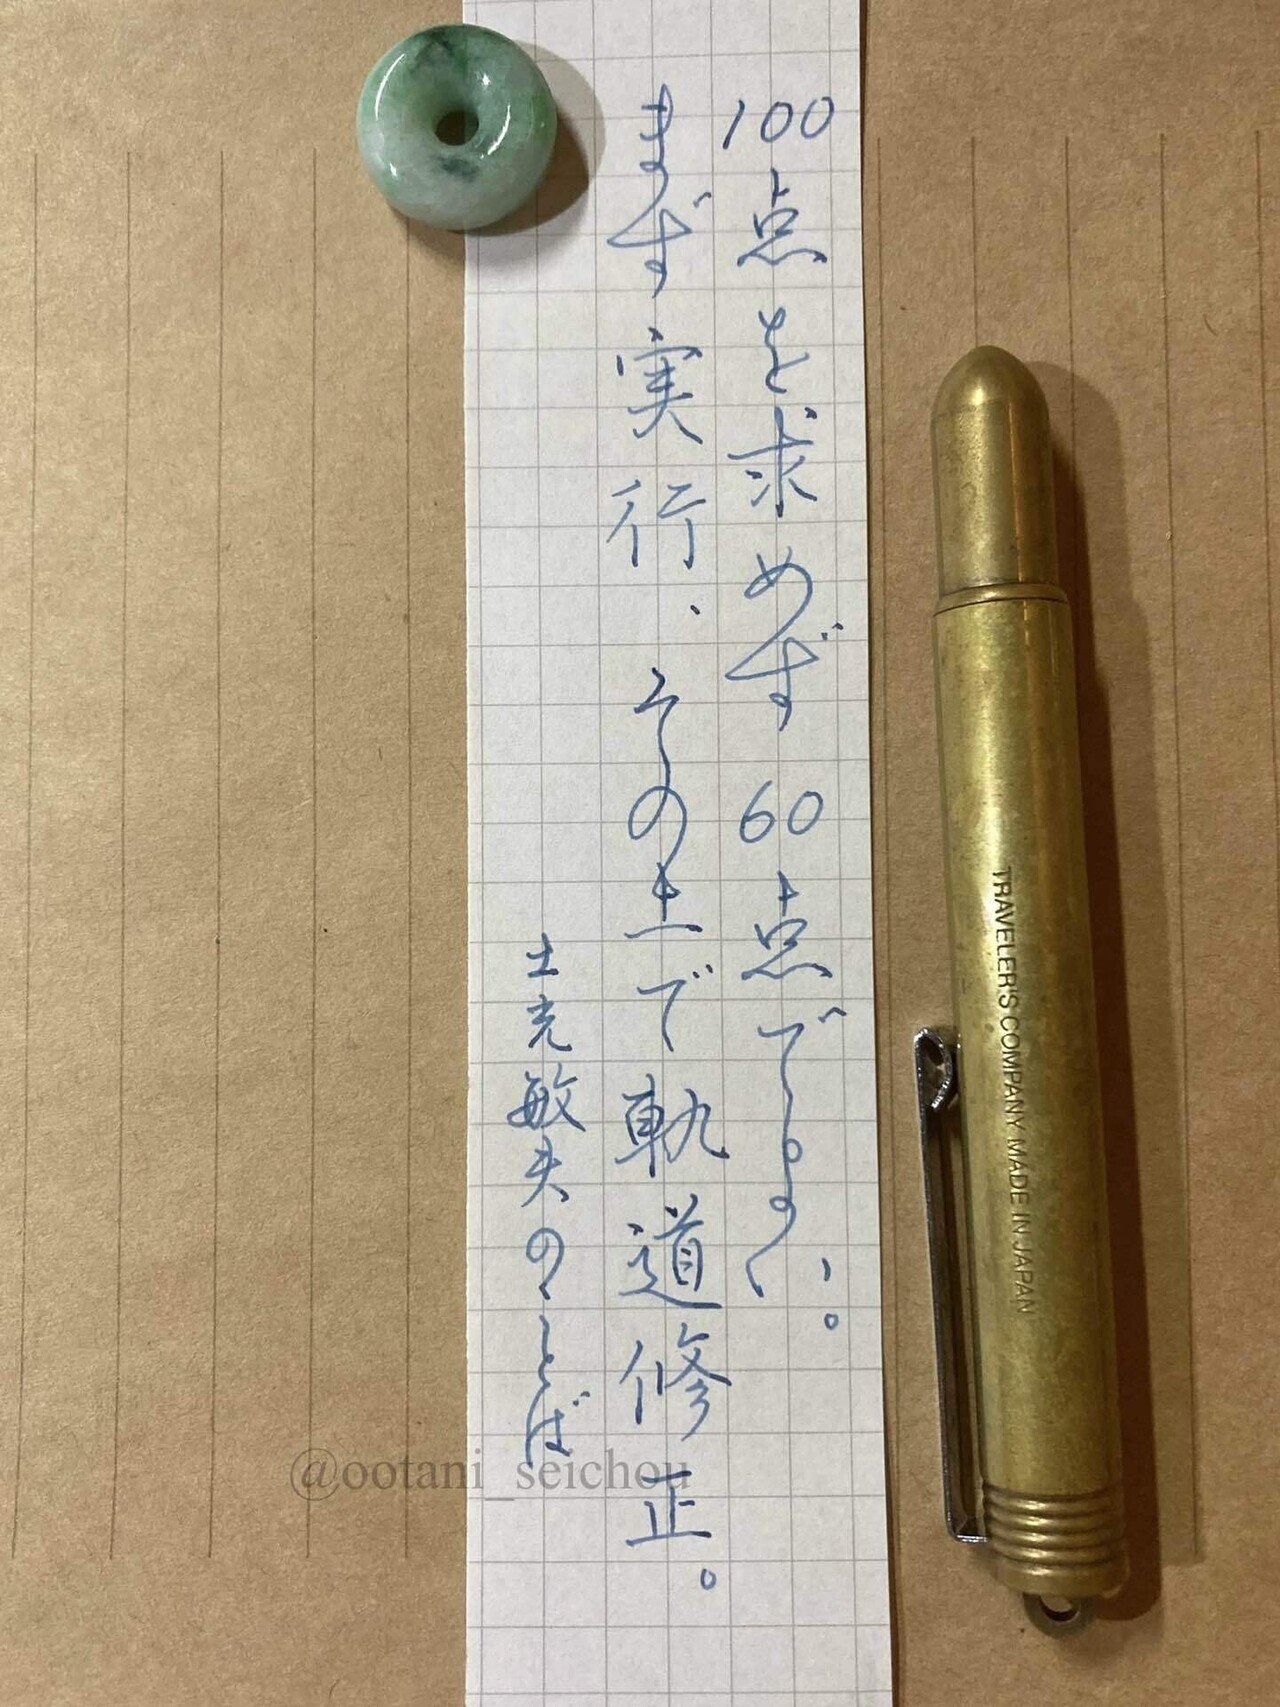 100点を求めず60点でよい。
まず実行、その上で軌道修正。
土光敏夫のことば
TRAVELER'S COMPANY MADE IN JAPAN
@ootani_seichou